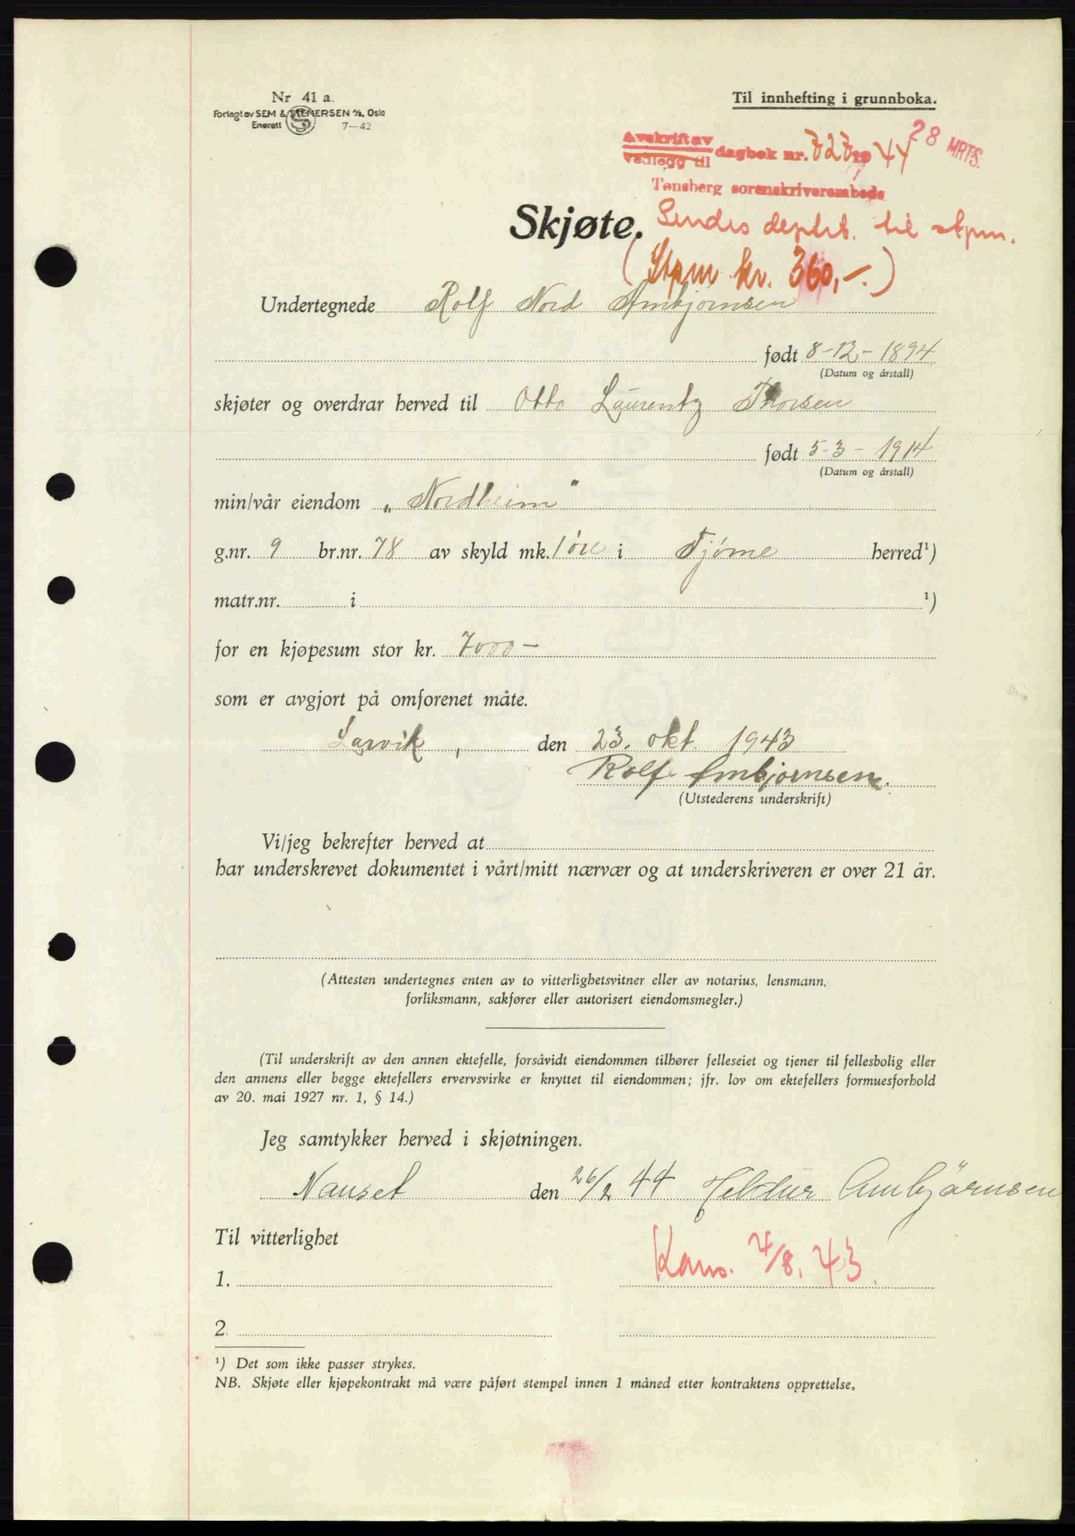 Nr 41 a.
Forlagt av SEM & STENERSEN A/S, Oslo
Enerett 7—42
Til innhefting i grunnboka.
28 MRTS.
Avskrift av
vedlegg til dagbok nr. 727 1944
Tønsberg sorenskriverembede
Skjøte. Sendes til
(Stpm kr. 360,-.)
Undertegnede Rolf Nord Ambjørnsen
født 8-12-1894
(Datum og årstall)
skjøter og overdrar herved til Otto Laurentz Thorsen
født 5-3-1914
(Datum og årstall)
min/vår eiendom „Nordheim"
g.nr. 9 br.nr. 78 av skyld mk. 1 øre i Tjøme herred¹)
matr.nr. i ¹)
for en kjøpesum stor kr. 7000-
som er avgjort på omforenet måte.
Larvik, den 23. okt 1943
Rolf Ambjørnsen.
(Utstederens underskrift)
Vi/jeg bekrefter herved at
har underskrevet dokumentet i vårt/mitt nærvær og at underskriveren er over 21 år.
(Attesten undertegnes enten av to vitterlighetsvitner eller av notarius, lensmann,
forliksmann, sakfører eller autorisert eiendomsmegler.)
(Til underskrift av den annen ektefelle, forsåvidt eiendommen tilhører felleseiet og tjener til fellesbolig eller
den annens eller begge ektefellers ervervsvirke er knyttet til eiendommen; jfr. lov om ektefellers formuesforhold
av 20. mai 1927 nr. 1, § 14.)
Jeg samtykker herved i skjøtningen.
Nanset den 26/2 44 Ambjörnsen
Til vitterlighet
Kons. 4/8. 43.
1.
2.
¹) Det som ikke passer strykes.
NB. Skjøte eller kjøpekontrakt må være påført stempel innen 1 måned etter kontraktens opprettelse.